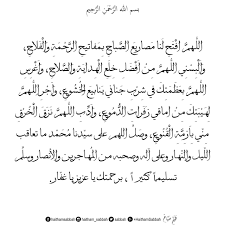 بسم الله الرحمن الرحيم
اللهم افتح لنا مصاريع الصباح بمفاتيح الرحمة والفلاح،
وألبسني اللهم من أفضل خلع الهداية والصلاح، واغرس
اللهم بعظمتك في شرب جناني ينابيع الخشوع، وأجر اللهم
لهيبتك من آماقي زفرات الدموع، وأدب اللهم نزق الخرق
مني بأزمة القنوع، وصل اللهم على سيدنا محمد ما تعاقب
الليل والنهار وعلى آله وصحبه من المهاجرين والأنصار وسلم
تسليما كثيرا، برحمتك يا عزيز يا غفار.